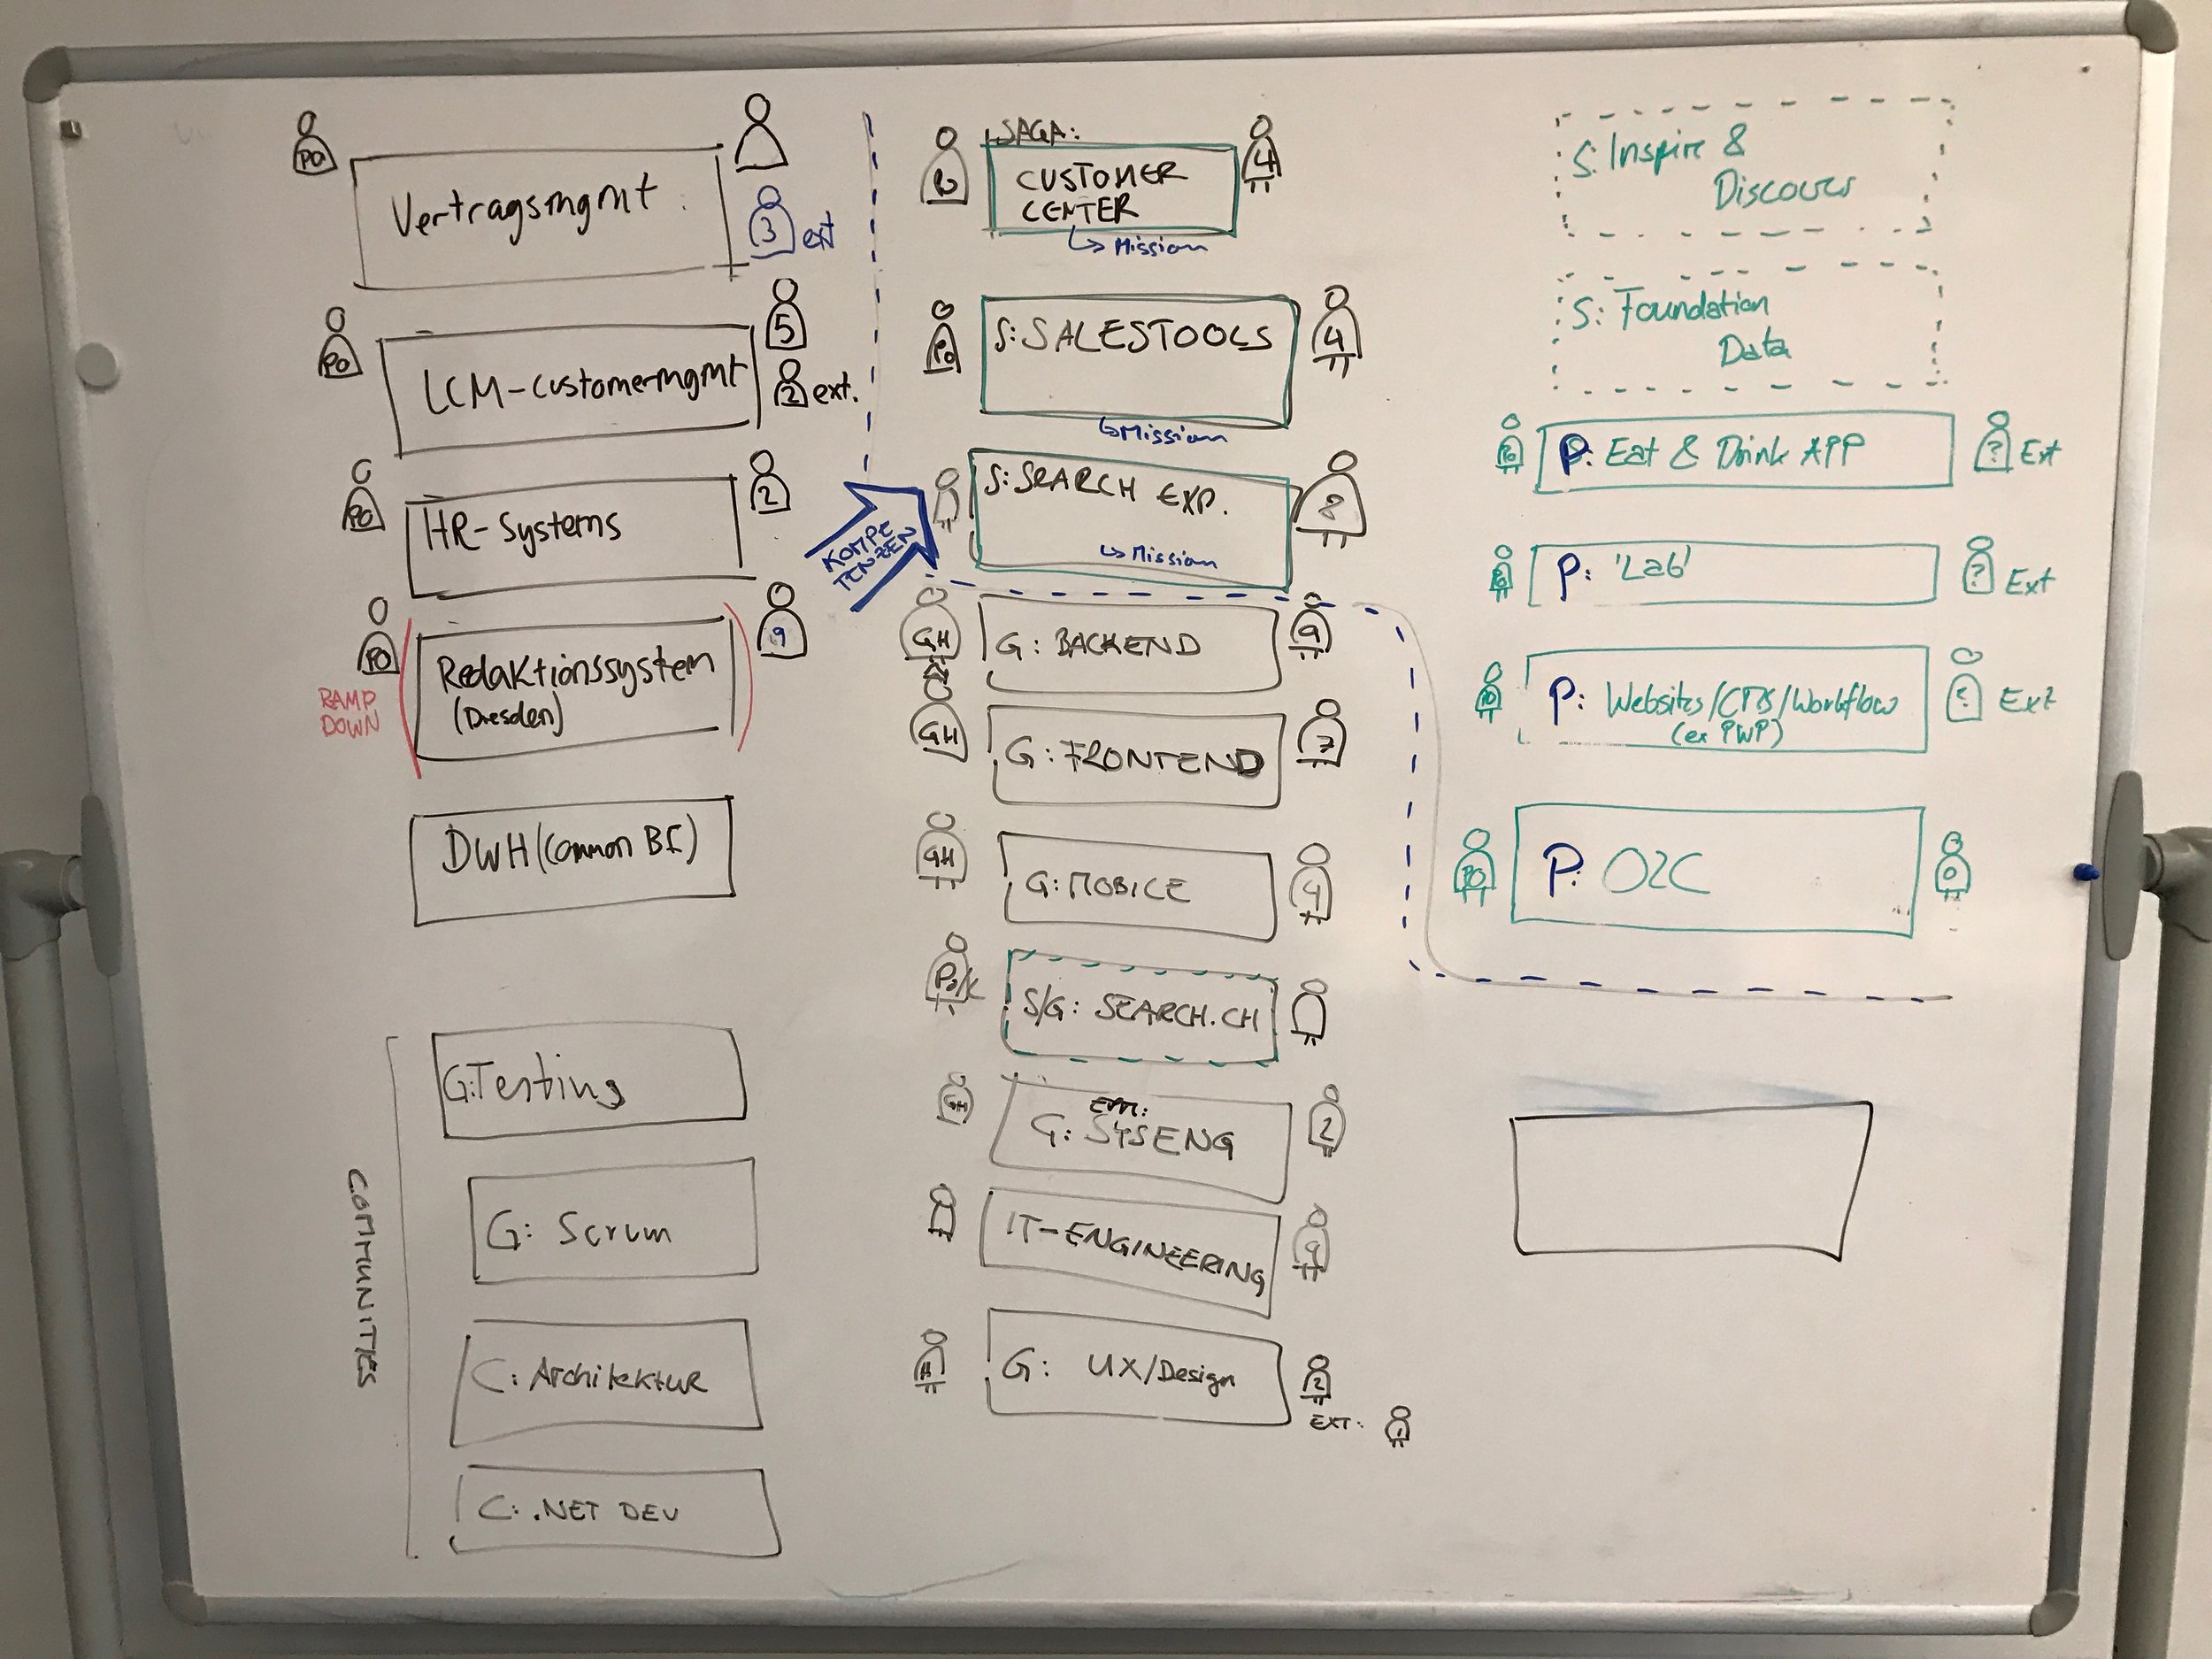 PO
Vertragsmgmt
3 ext
PO
LCM-Customermgmt
5
2 ext.
PO
HR-Systems
2
PO
RAMP
DOWN
Redaktionssystem
(Dresden)
9
DWH (Common BI)
COMMUNITIES
G:Testing
G: Scrum
C: Architektur
C: .NET DEV
KOMPE
TENZEN
SAGA:
PO
CUSTOMER
CENTER
4
↳ Mission
PO
S: SALESTOOLS
4
↳ Mission
S: SEARCH EXP.
8
↳ Mission
GH
G: BACKEND
9
GH
G: FRONTEND
7
GH
G: MOBILE
4
S/G: SEARCH.CH
GH
G: SYSENG
2
IT-ENGINEERING
9
G: UX/Design
2
EXT:
S: Inspire &
Discover
S: Foundation
Data
PO
P: Eat & Drink APP
? Ext
P: 'Lab'
? Ext
PO
P: Websites/CMS/Workflow
(ex PWP)
? Ext
PO
P: O2C
0